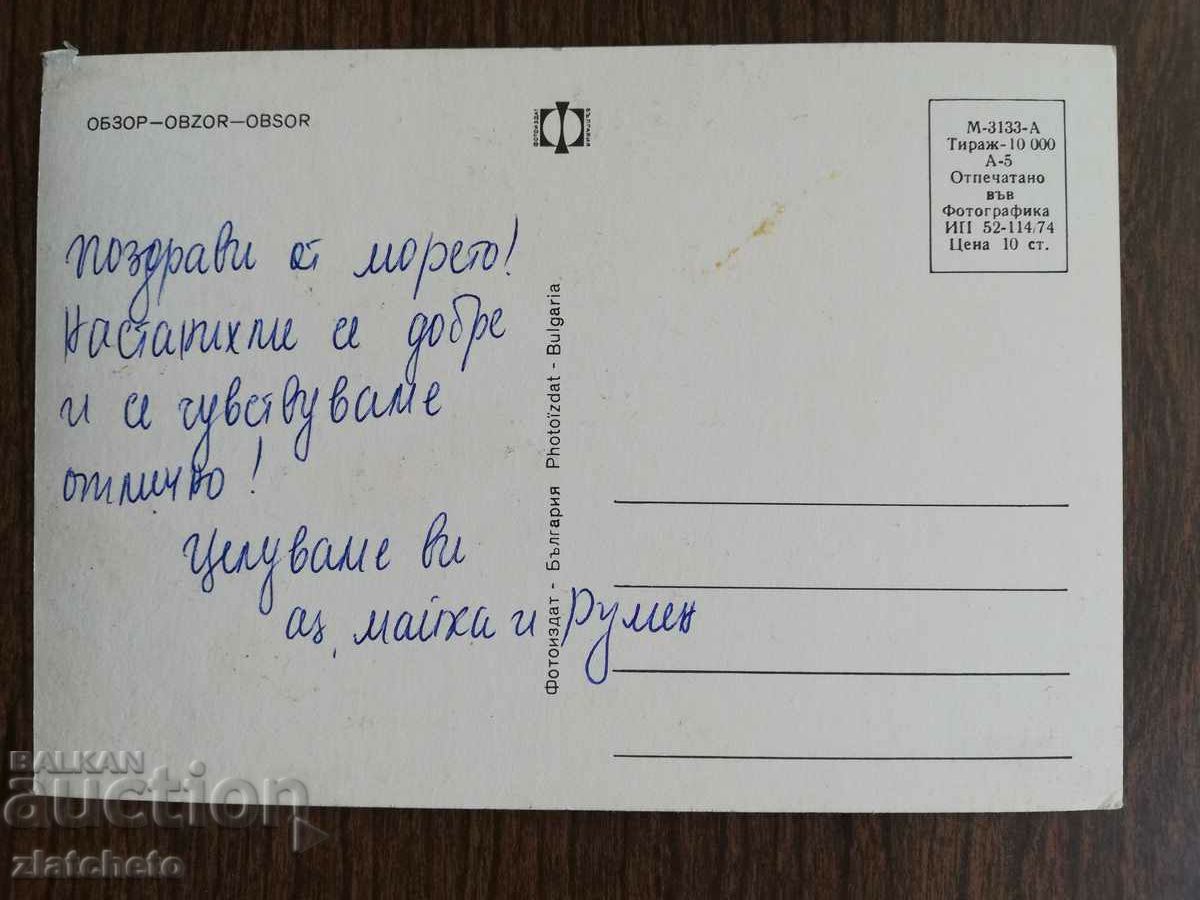 ОБЗОР—OBZOR—OBSOR
ФОТОИЗДАТ
БЪЛГАРИЯ
М-3133-А
Тираж-10 000
А-5
Отпечатано
във
Фотографика
ИП 52-114/74
Цена 10 ст.
Поздрави от морето!
Настанихме се добре
и се чувствуваме
отлично!
Целуваме ви
аз, майка и Румен
Фотоиздат - България Photoïzdat - Bulgaria
BALKAN
auction
zlatcheto